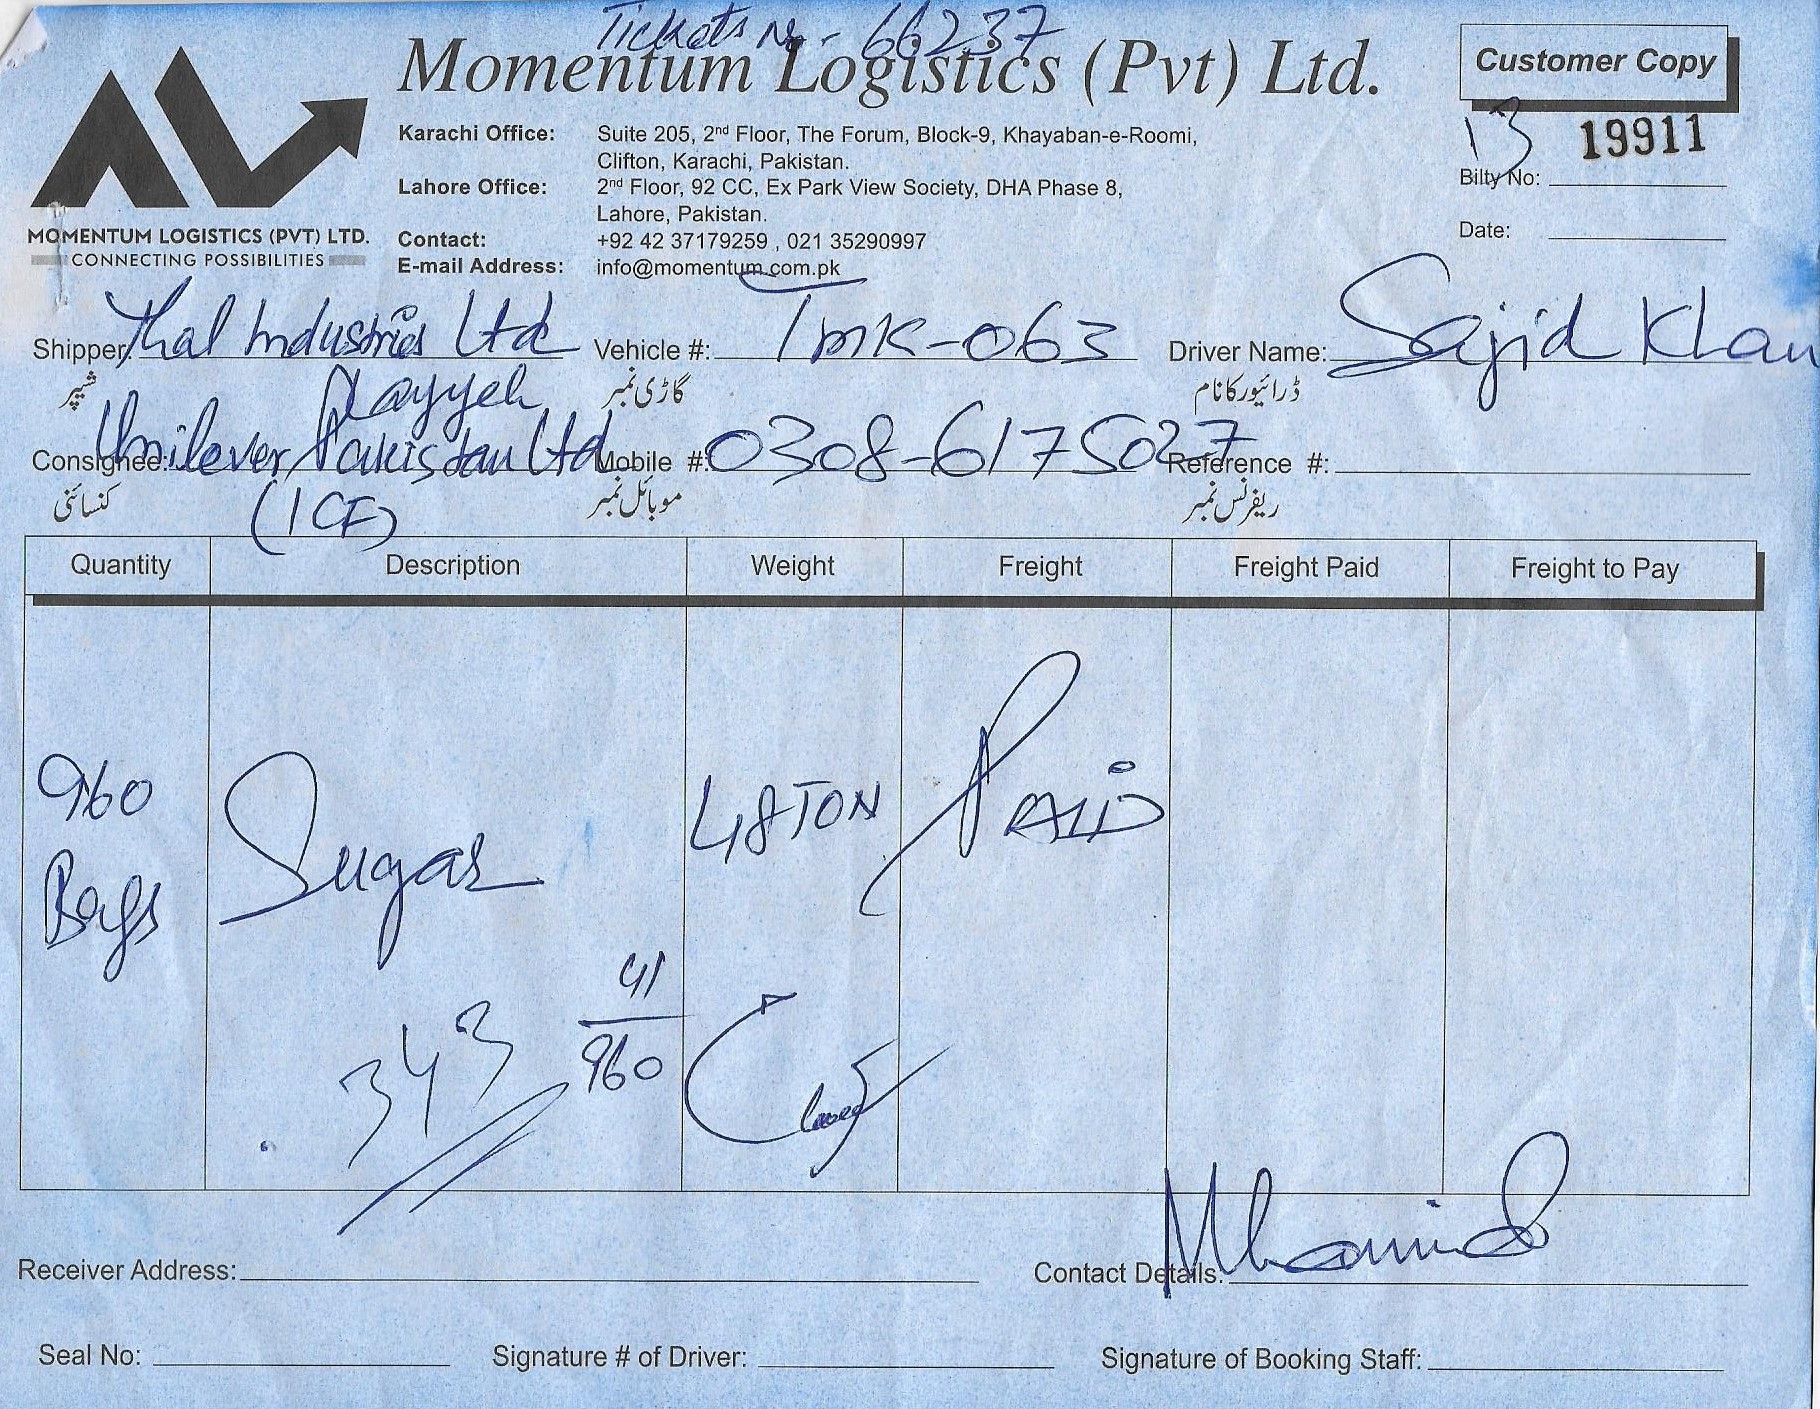 Tickets No - 66237
Momentum Logistics (Pvt) Ltd.
Customer Copy
MOMENTUM LOGISTICS (PVT) LTD.
CONNECTING POSSIBILITIES
Karachi Office: Suite 205, 2nd Floor, The Forum, Block-9, Khayaban-e-Roomi,
Clifton, Karachi, Pakistan.
Lahore Office: 2nd Floor, 92 CC, Ex Park View Society, DHA Phase 8,
Lahore, Pakistan.
Contact: +92 42 37179259 , 021 35290997
E-mail Address: info@momentum.com.pk
13 19911
Bilty No:
Date:
Shipper: Thal Industries Ltd Vehicle #: TMK-063 Driver Name: Sajid Khan
شپر گاڑی نمبر ڈرائیور کا نام
Layyeh
Consignee: Unilever Pakistan Ltd Mobile #: 0308-6175027 Reference #:
کنسائنی موبائل نمبر ریفرنس نمبر
(ICF)
Quantity Description Weight Freight Freight Paid Freight to Pay
960 Bags Sugar 48 TON PAID
343 41/960
Receiver Address: Contact Details:
Seal No: Signature # of Driver: Signature of Booking Staff: